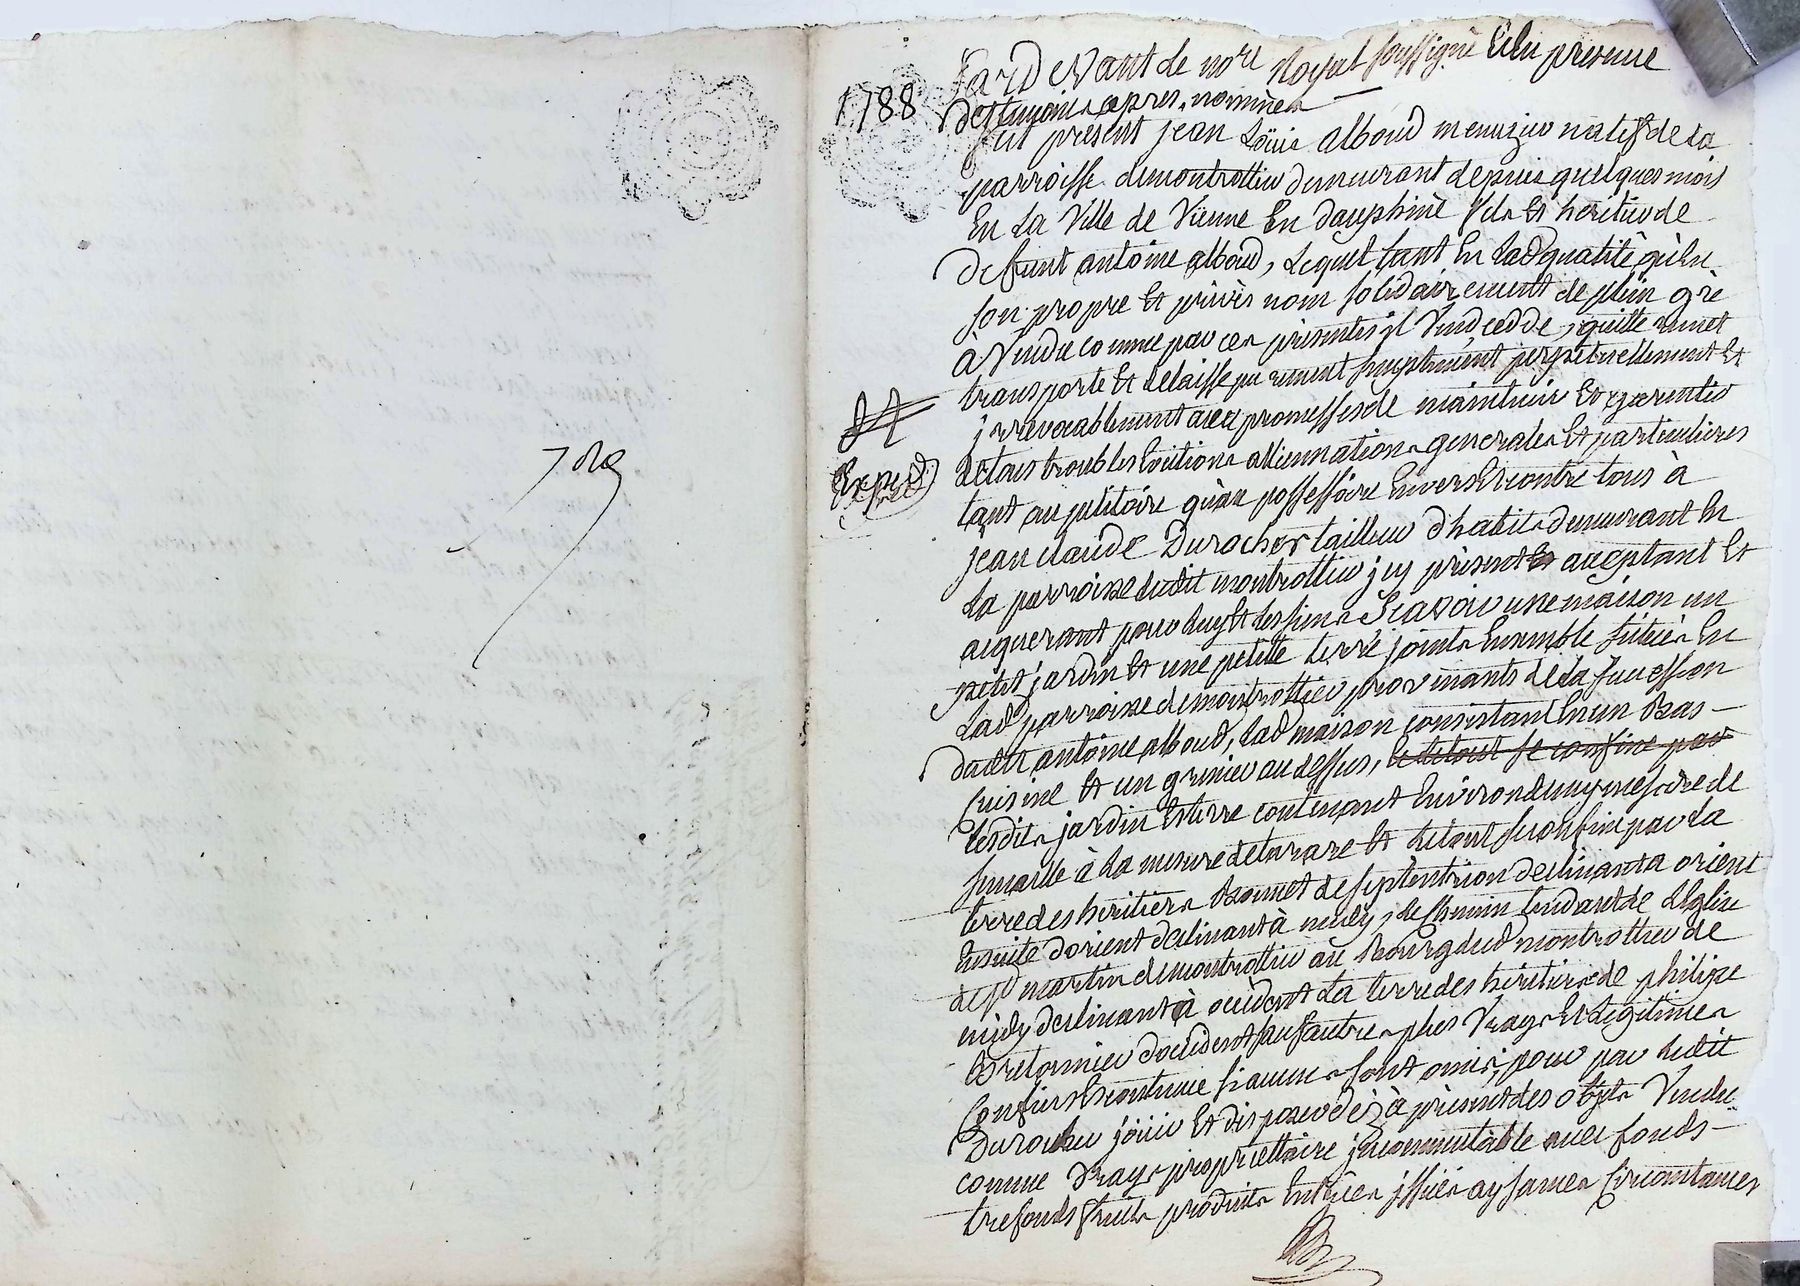 1788
Pardevant le no.re Royal soussigné Et en presence
des temoins apres nommés
fut present jean Loüis alboud menuizier natif de la
parroisse de montrottier demeurant depuis quelques mois
En la Ville de Vienne En dauphiné fils et heritier de
defunt antoine alboud, Lequel tant En lad qualité qu'en
son propre Et privés nom solidairement de plein gré
à Vendu comme par ces présentes jl Vend, cedde, quitte remet
transporte Et delaisse purement simplement perpetuellement Et
jrrevocablement avec promesses de maintenir Et garentir
de tous troubles Evictions alliennations generales Et particulieres
tant au petitoire qu'au possessoire Envers Et contre tous à
jean claude Durocher tailleur d'habits demeurant En
La parroisse dudit montrottier jcy présent et acceptant Et
aiquerant pour luy Et les siens Scavoir une maison un
petit jardin Et une petitte terre joints Ensemble situés En
Lad parroisse de montrottier provenants de la succession
dudit antoine alboud, Lad maison consistant En un Bas
Cuisine Et un grenier au dessus, le tetout se confine par
lesdits jardin Et terre contenant Environ demy mesure de
semaille à La mesure de tarare Et le tout se confine par La
terre des heritiers Bonnet de septentrion declinant a orient
Ensuite d'orient declinant à midy, Le chemin tendant de L'Eglise
de st martin de montrottier au Bourg dud montrottier de
midy declinant à occident La terre des heritiers de philipe
Bretonnier d'occident sauf autres plus Vrays Et Legitimes
Confins Et contenue si aucuns sont omis, pour par Ledit
Durocher jouir Et disposer dès à présent des objets Vendus
comme Vrays proprietaire jncommutable avec fonds
trefonds fruits produits Entrées jssües aysances Circonstances
Exped.